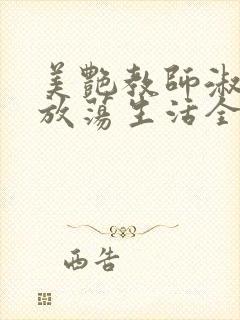 美艷教師淑
放蕩生活全
西告